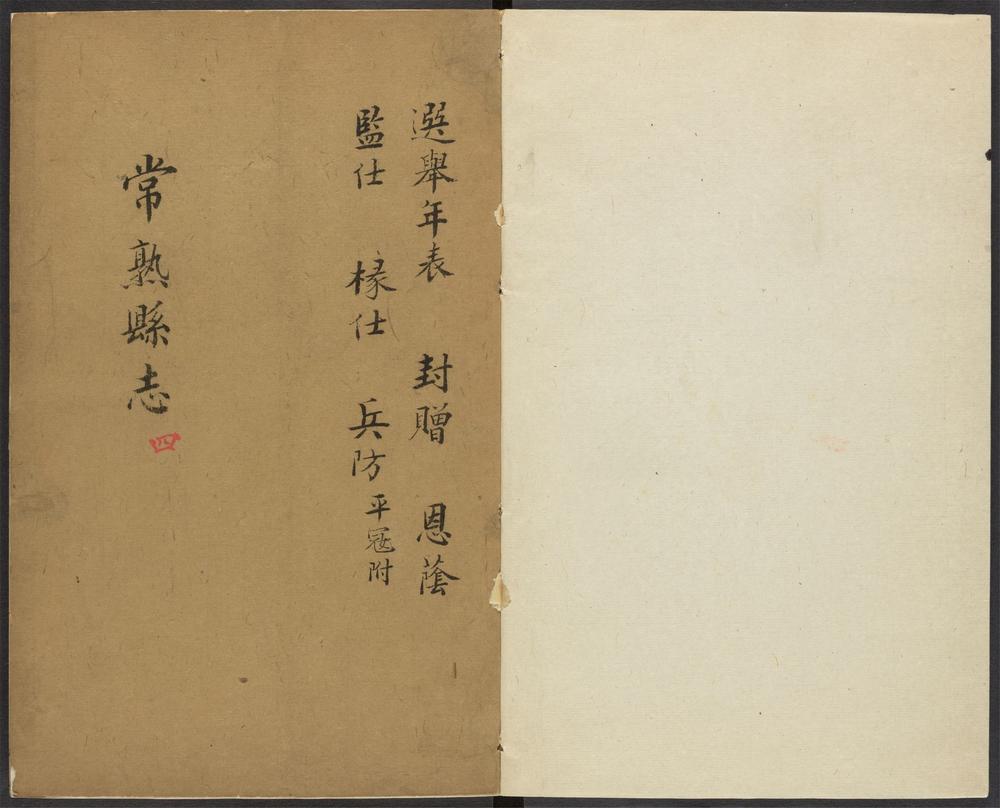 選舉年表 封贈 恩蔭
監仕 椽仕 兵防 平寇附
常熟縣志 四